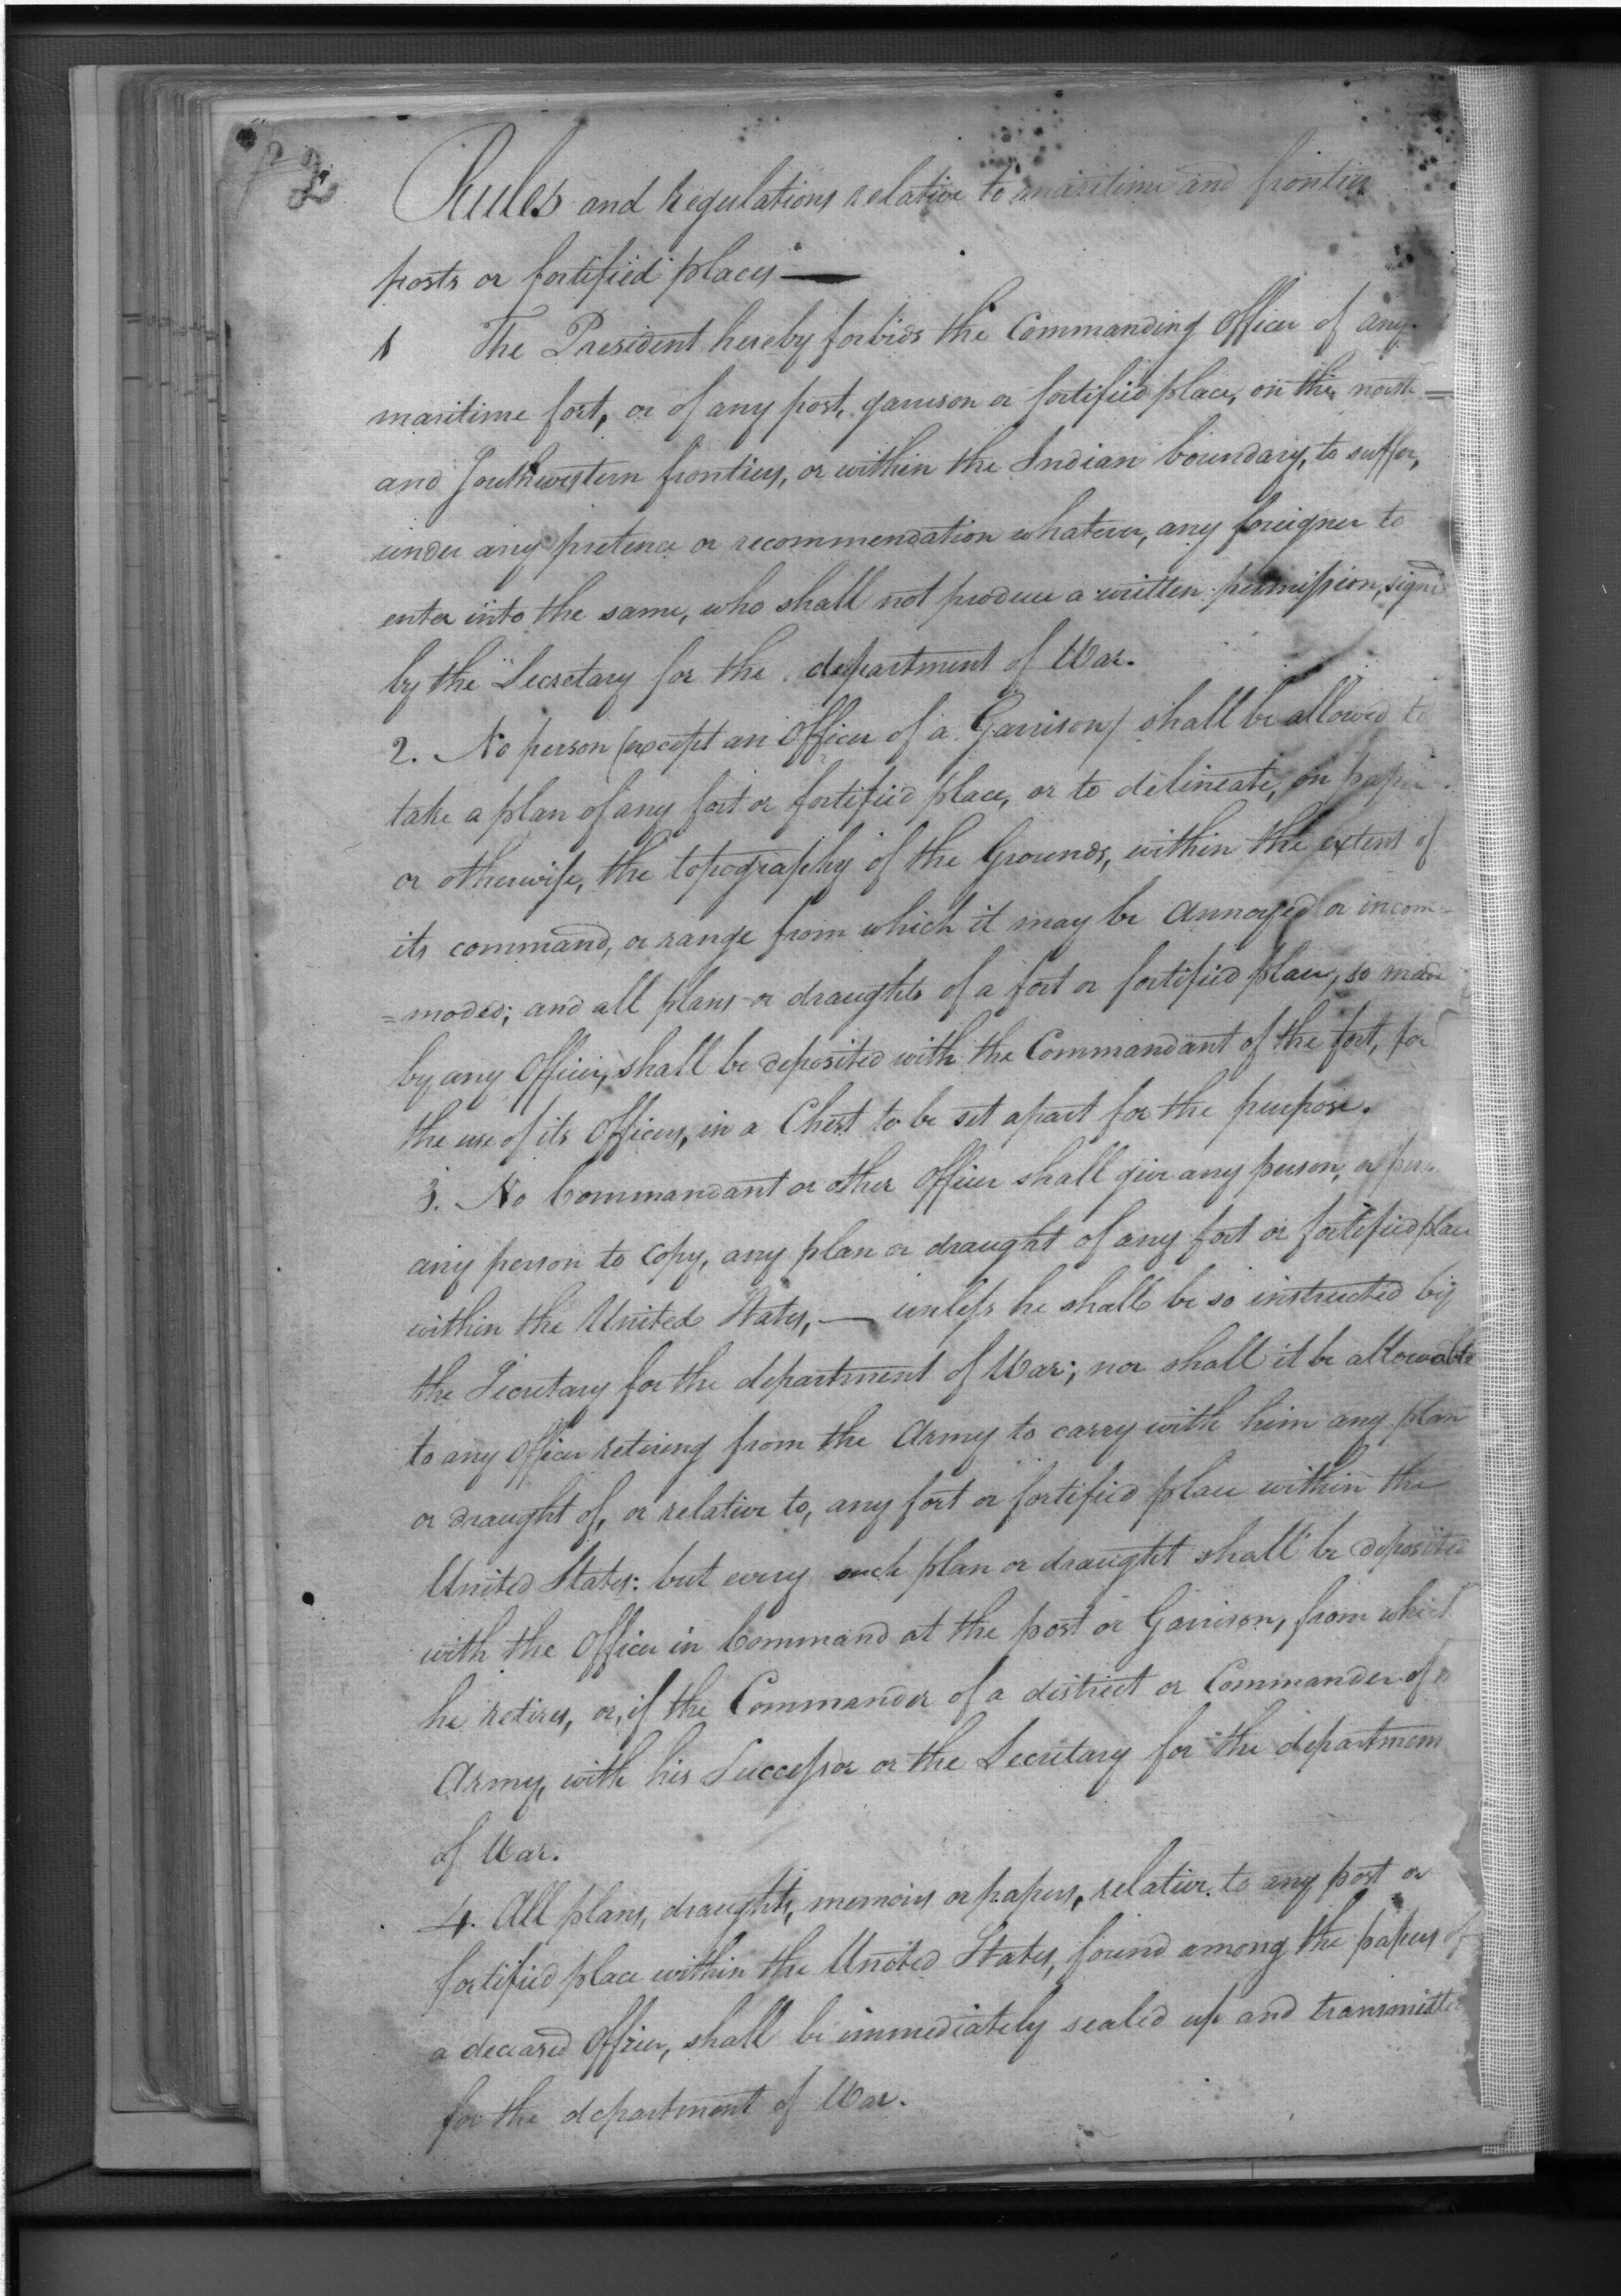 2
Rules and Regulations relative to maritime and frontier
posts or fortified places —
1 The President hereby forbids the Commanding Officer of any
maritime fort, or of any post, garrison or fortified place, on the north =
and Southwestern frontiers, or within the Indian boundary, to suffer,
under any pretence or recommendation whatever, any foreigner to
enter into the same, who shall not produce a written permission, signed
by the Secretary for the department of War.
2. No person (except an Officer of a Garrison) shall be allowed to
take a plan of any fort or fortified place, or to delineate, on paper
or otherwise, the topography of the Grounds, within the extent of
its command, or range from which it may be annoyed or incom=
=moded; and all plans or draughts of a fort or fortified place, so made
by any Officer, shall be deposited with the Commandant of the fort, for
the use of its Officers, in a Chest to be set apart for the purpose.
3. No Commandant or other Officer shall give any person, or
any person to copy, any plan or draught of any fort or fortified place
within the United States, — unless he shall be so instructed by
the Secretary for the department of War; nor shall it be allowable
to any Officer retiring from the Army to carry with him any plan
or draught of, or relative to, any fort or fortified place within the
United States: but every such plan or draught shall be deposited
with the Officer in Command at the post or Garrison, from which
he retires, or, if the Commander of a district or Commander of
Army, with his Successor or the Secretary for the department
of War.
4. All plans, draughts, memoirs or papers, relative to any post or
fortified place within the United States, found among the papers of
a deceased Officer, shall be immediately sealed up and transmitted
for the department of War.